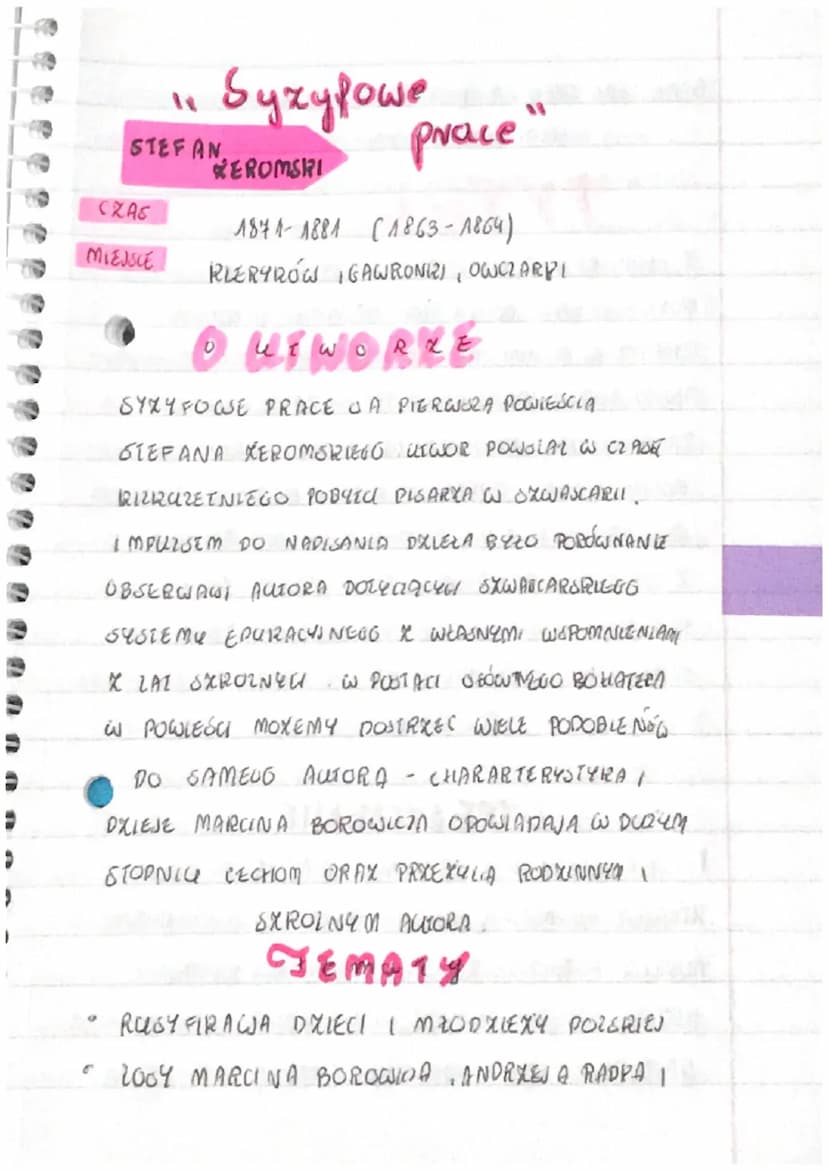 „Syzyfowe
prace"
STEFAN
ŻEROMSKI
CZAS
1871-1881 (1863-1864)
MIEJSCE
KLERYKÓW, GAWRONKI, OWCZARKI
O UTWORZE
SYZYFOWE PRACE SĄ PIERWSZĄ POWIEŚCIĄ
STEFANA ŻEROMSKIEGO UTWÓR POWSTAŁ W CZASIE
KILKULETNIEGO POBYTU PISARZA W SZWAJCARII.
IMPULSEM DO NAPISANIA DZIEŁA BYŁO PORÓWNANIE
OBSERWACJI AUTORA DOTYCZĄCYCH SZWAJCARSKIEGO
SYSTEMU EDUKACYJNEGO Z WŁASNYMI WSPOMNIENIAMI
Z LAT SZKOLNYCH. W POSTACI GŁÓWNEGO BOHATERA
W POWIEŚCI MOŻEMY DOSTRZEC WIELE PODOBIEŃSTW
DO SAMEGO AUTORA - CHARAKTERYSTYKA I
DZIEJE MARCINA BOROWICZA OPOWIADAJĄ W DUŻYM
STOPNIU CECHOM ORAZ PRZEŻYCIĄ RODZINNYM I
SZKOLNYM AUTORA.
TEMATY
• RUSYFIKACJA DZIECI I MŁODZIEŻY POLSKIEJ
• LOSY MARCINA BOROWICZA, ANDRZEJA RADKA I